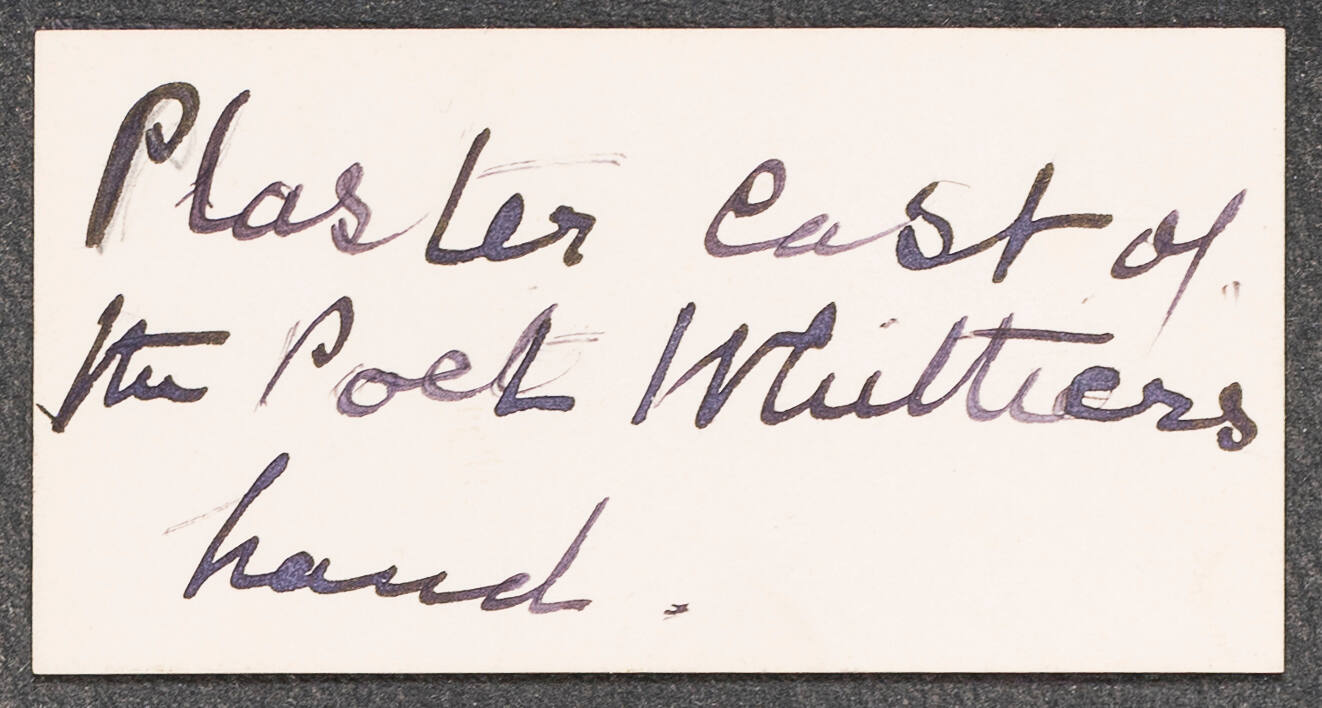 Plaster Cast of
the Poet Whittiers
hand.